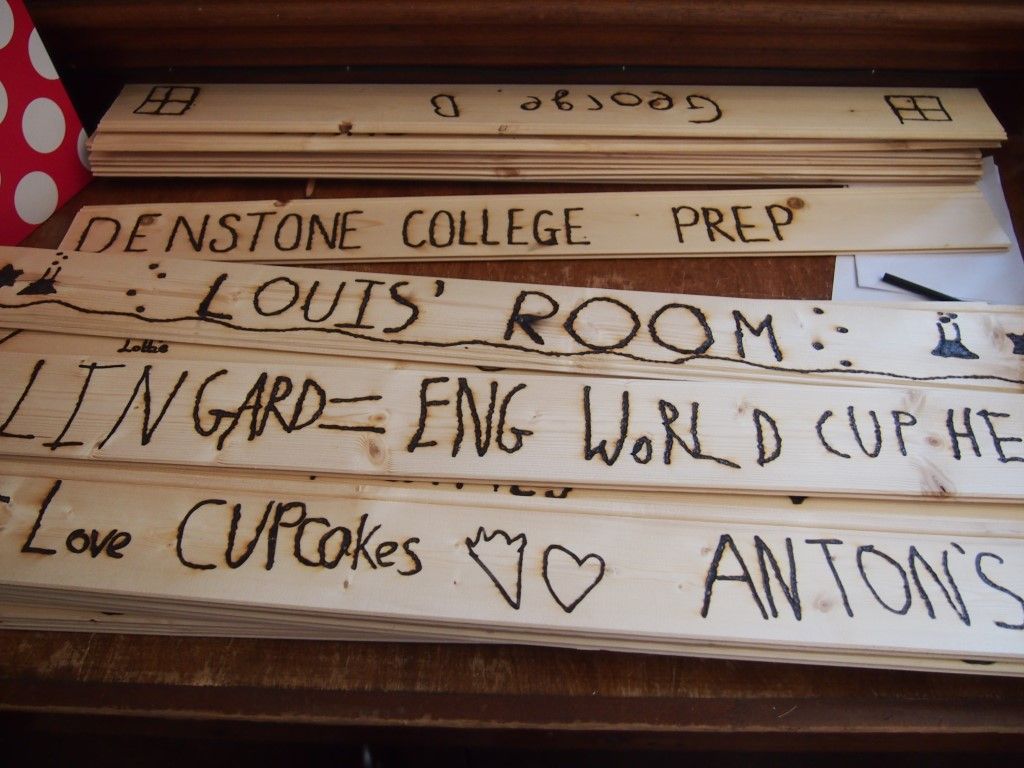 George B
DENSTONE COLLEGE PREP
LOUIS' ROOM
Lottie
LINGARD = ENG WORLD CUP HE
Love CUPCakes ANTON'S